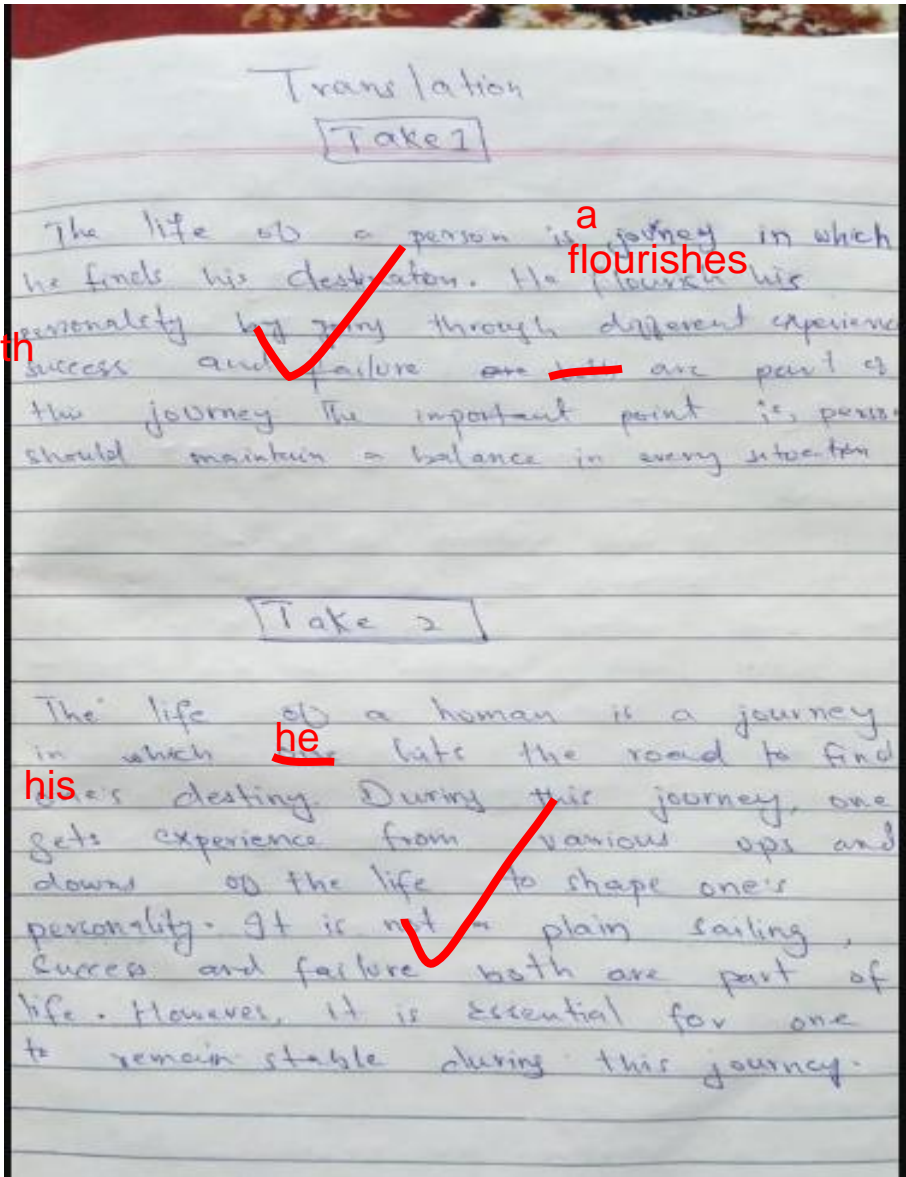 Translation
Take 1
a
The life of a person is journey in which
flourishes
he finds his destination. He flourish his
personality by going through different experience
th
success and failure are both are part of
this journey The important point is, person
should maintain a balance in every situation
Take 2
The life of a human is a journey
he
in which hits the road to find
his
one's destiny. During this journey, one
gets experience from various ups and
downs of the life to shape one's
personality. It is not a plain sailing,
Success and failure both are part of
life. However, it is essential for one
to remain stable during this journey.